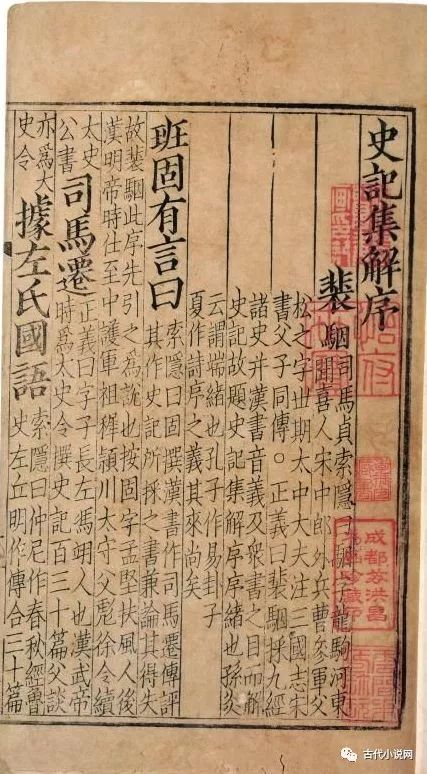 史記集解序
裴駰司馬貞索隱曰駰字龍駒河東
聞喜人宋中郎外兵曹參軍父
松之字世期太中大夫注三國志宋
書父子同傳。正義曰裴駰採九經
諸史并漢書音義及衆書之目而解
史記故題史記集解序序緒也孫炎
云謂端緒也孔子作易卦子
夏作詩序之義其來尚矣
班固有言曰索隱曰固撰漢書作司馬遷傳評
其作史記所採之書兼論其得失
故裴駰此序先引之爲說也按固字孟堅扶風人後
漢明帝時仕至中護軍祖穉潁川太守父彪徐令續
太史
公書
司馬遷正義曰字子長左馮翊人也漢武帝
時爲太史令撰史記百三十篇父談
亦爲太
史令
據左氏國語索隱曰仲尼作春秋經魯
史左丘明作傳合三十篇
古代小说网